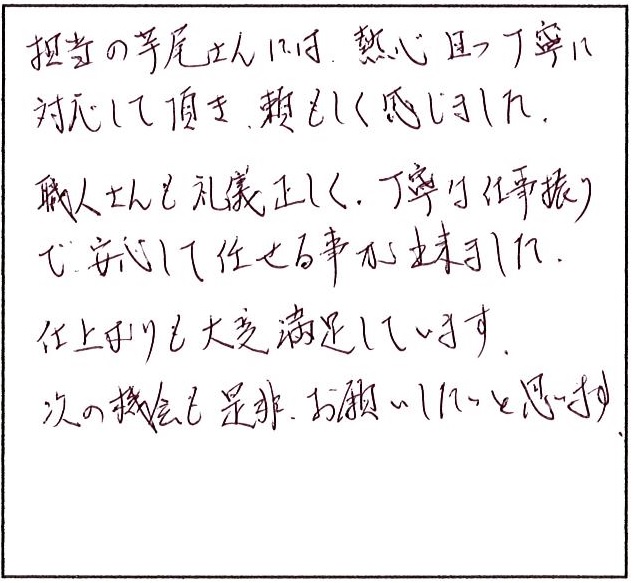 担当の芋尾さんには、熱心且つ丁寧に
対応して頂き、頼もしく感じました。
職人さんも礼儀正しく、丁寧な仕事振り
で、安心して任せる事が出来ました。
仕上がりも大変満足しています。
次の機会も是非、お願いしたいと思います。